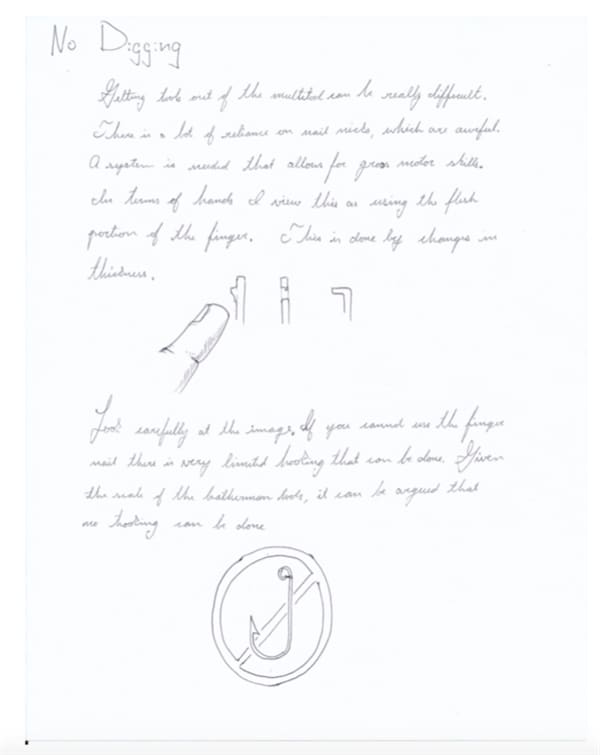 No Digging
Getting tools out of the multitool can be really difficult.
There is a lot of reliance on nail nicks, which are aweful.
A system is needed that allows for gross motor skills.
In terms of hands I view this as using the flesh
portion of the finger. This is done by changes in
thickness.
Look carefully at the image. If you cannot use the finger
nail there is very limited hooking that can be done. Given
the scale of the leatherman tools, it can be argued that
no hooking can be done